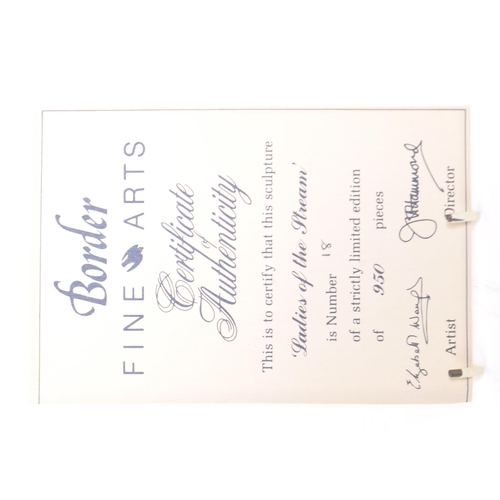 Border
FINE ARTS
Certificate
of
Authenticity
This is to certify that this sculpture
'Ladies of the Stream'
is Number 18
of a strictly limited edition
of 950 pieces
Elizabeth
Artist Director